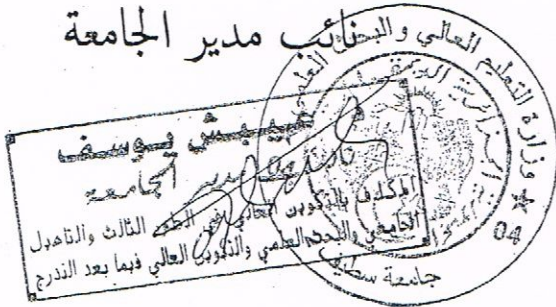 نائب مدير الجامعة
وزارة التعليم العالي و البحث العلمي
يوسف
مدير الجامعة
المكلف بالتكوين العالي في الطور الثالث والتأهيل
الجامعي والبحث العلمي والتكوين العالي فيما بعد التدرج
جامعة سطيف
04